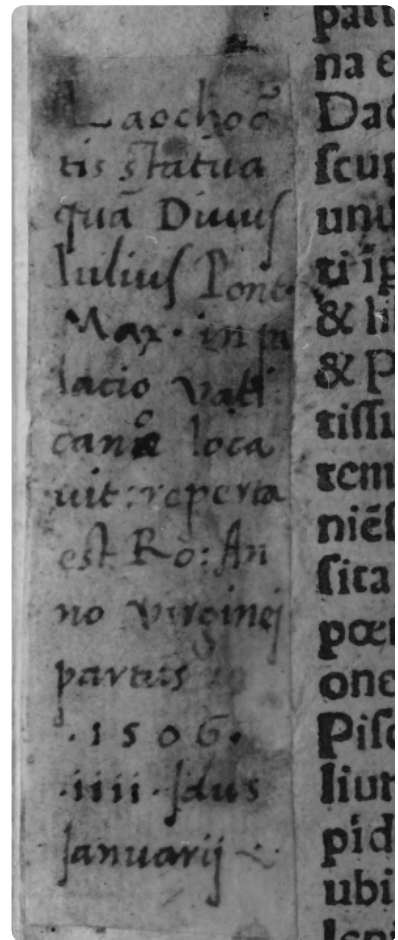 Laochoō
tis statua
quā Diuus
Iulius Pont.
Max. in pa
lacio vati
cano loca
uit: reperta
est Ro: An
no virginej
partus
.1506.
.iiii. Idus
Januarij
pati
na e
Dad
ſcup
unu
ti ip
& li
& P
tiſſu
tem
niēſ
ſita
pœt
one
Piſc
liun
pid
ubi